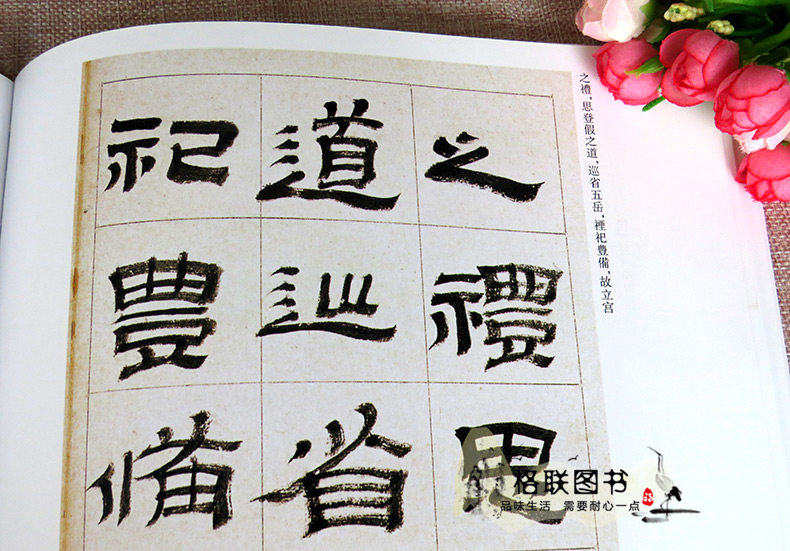 之禮思
道巡省
祀豊備
之禮，思登假之道，巡省五岳，禋祀豊備，故立宮
格联图书
品味生活 需要耐心一点